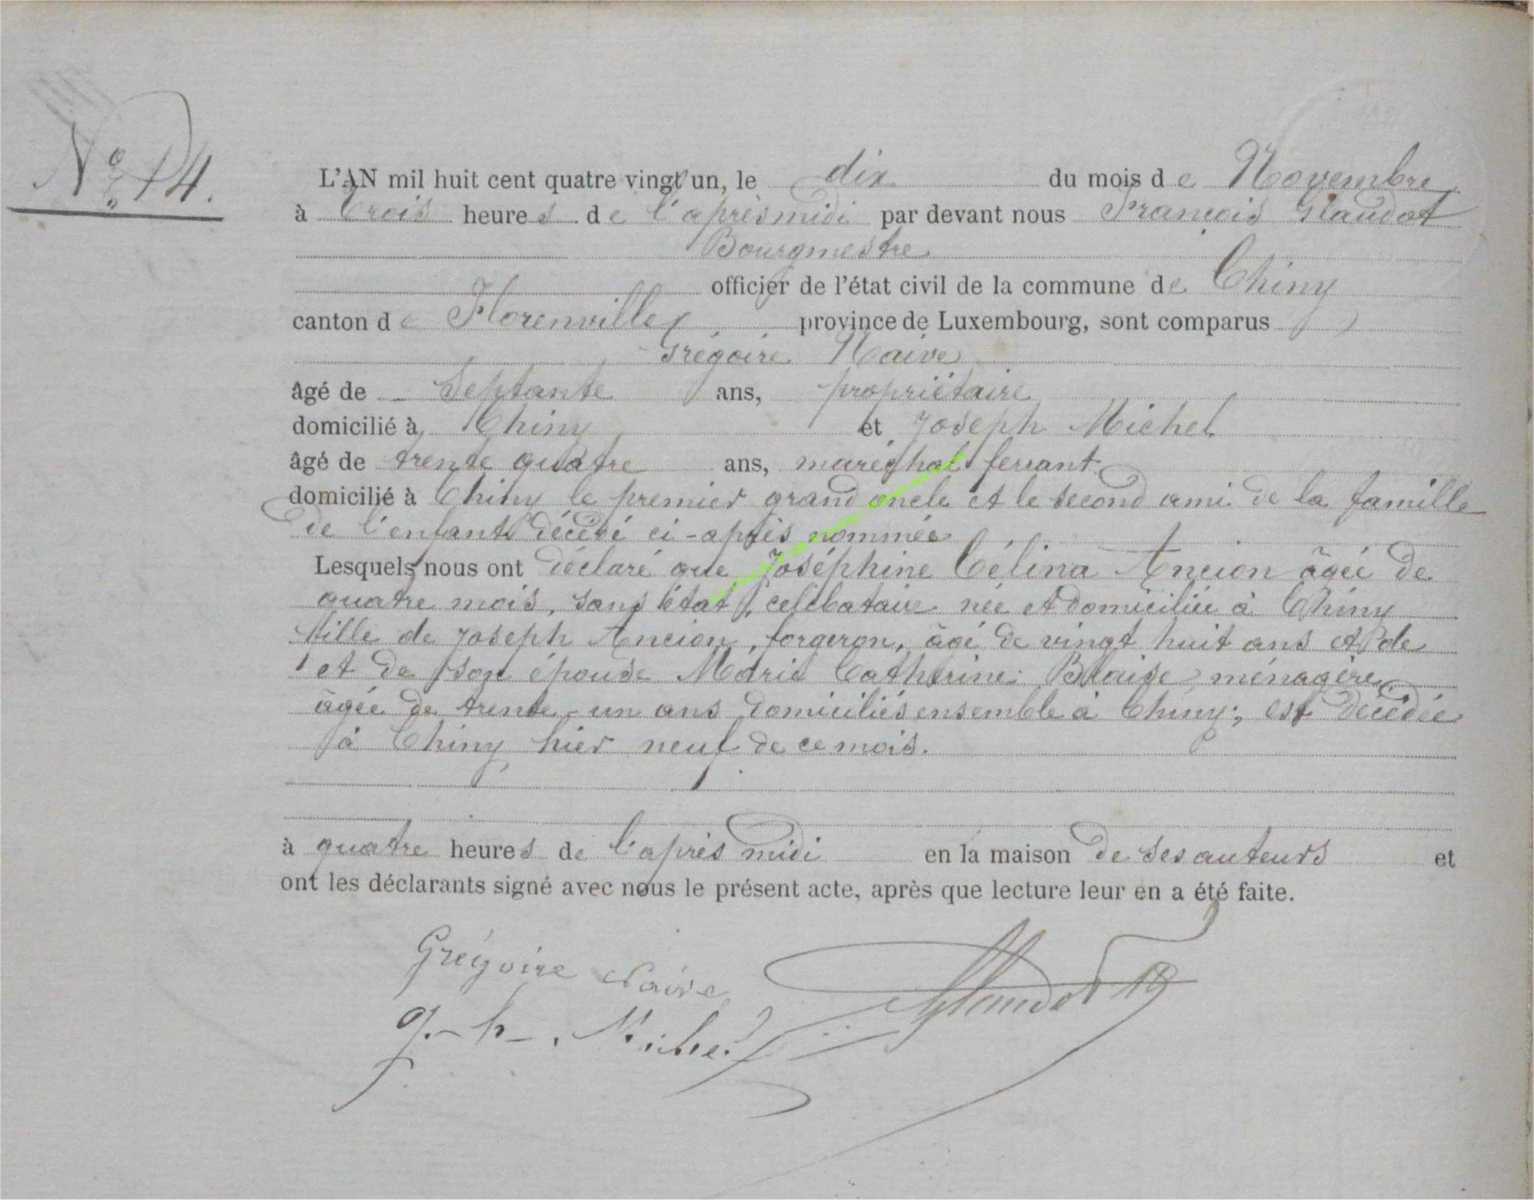 No 14.
L'AN mil huit cent quatre vingt un, le dix du mois de Novembre
à trois heures de l'après midi par devant nous François Glaudot
Bourgmestre
officier de l'état civil de la commune de Chiny
canton de Florenville, province de Luxembourg, sont comparus
Grégoire Naive
âgé de septante ans, propriétaire
domicilié à Chiny et Joseph Michel
âgé de trente quatre ans, maréchal ferrant
domicilié à Chiny le premier grand oncle et le second ami de la famille
de l'enfant décédé ci-après nommée
Lesquels nous ont déclaré que Joséphine Célina Ancion âgée de
quatre mois, sans état, celebataire née et domiciliée à Chiny
fille de Joseph Ancion, forgeron, âgé de vingt huit ans et de
et de son épouse Marie Catherine Blaise, ménagère,
âgée de trente-un ans domiciliés ensemble à Chiny; est décédée
à Chiny hier neuf de ce mois.
à quatre heures de l'après midi en la maison de ses auteurs et
ont les déclarants signé avec nous le présent acte, après que lecture leur en a été faite.
Grégoire Naive Glaudot
J.-h-. Michel